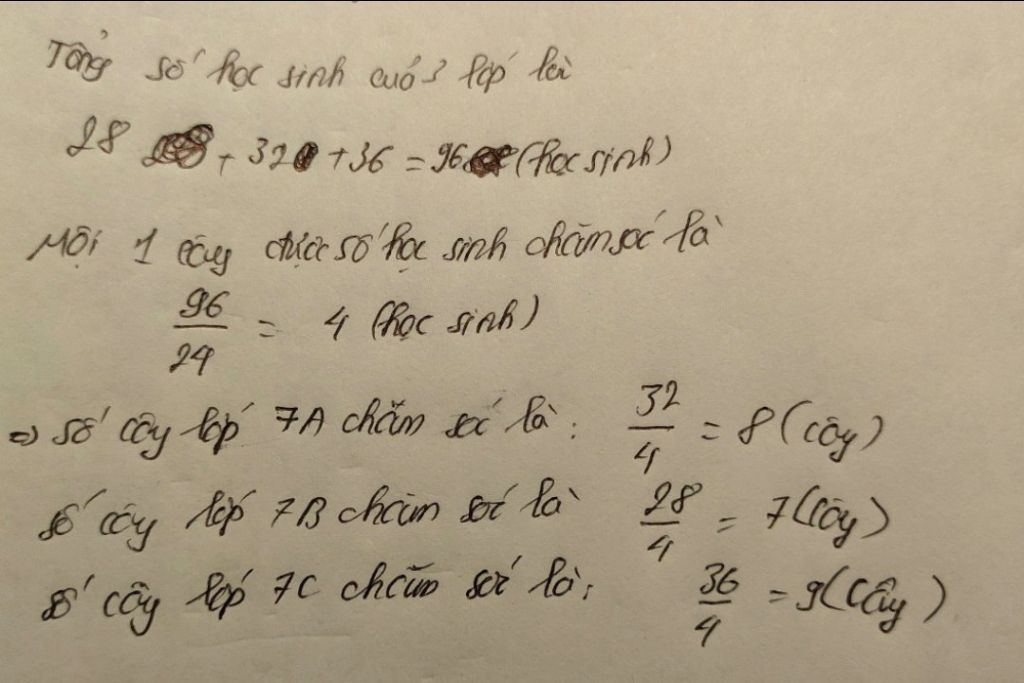 Tổng số học sinh cuả 3 lớp là
28 + 32 + 36 = 96 (học sinh)
Mỗi 1 cây được số học sinh chăm sóc là
96/24 = 4 (học sinh)
=> số cây lớp 7A chăm sóc là: 32/4 = 8 (cây)
số cây lớp 7B chăm sóc là 28/4 = 7 (cây)
số cây lớp 7C chăm sóc là: 36/4 = 9 (cây)